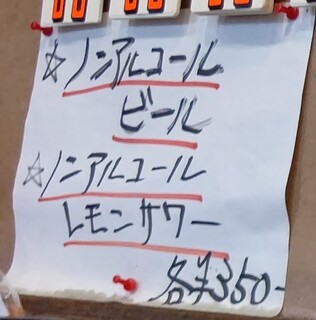 ☆ノンアルコール
ビール
☆ノンアルコール
レモンサワー
各¥350-